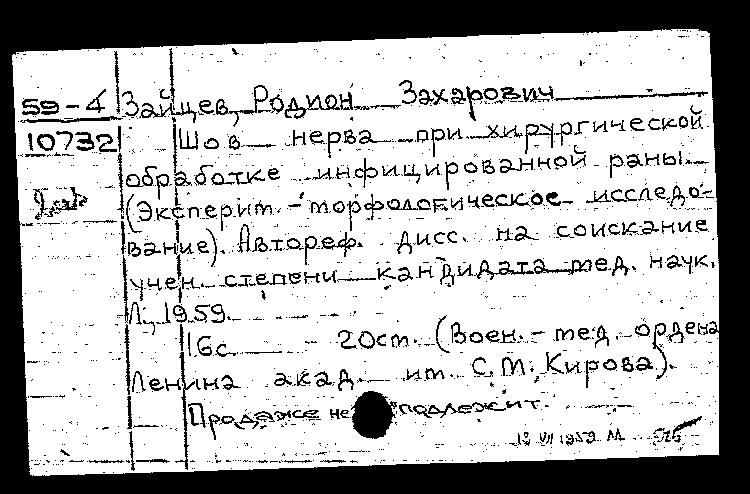 59-4 Зайцев, Родион Захарович
10732 Шов нерва при хирургической
обработке инфицированной раны.
(Эксперит.-торфологическое исследо-
вание). Автореф. дисс. на соискание
учен. степени кандидата тед. наук.
Л., 1959.
16с. 20ст. (Воен.-тед. ордена
Ленина акад. ит. С.М. Кирова).
Продаже не подлежит.
VII 1959